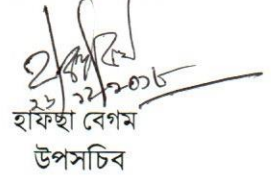 ২৬/১২/২০১৮
হাফিছা বেগম
উপসচিব